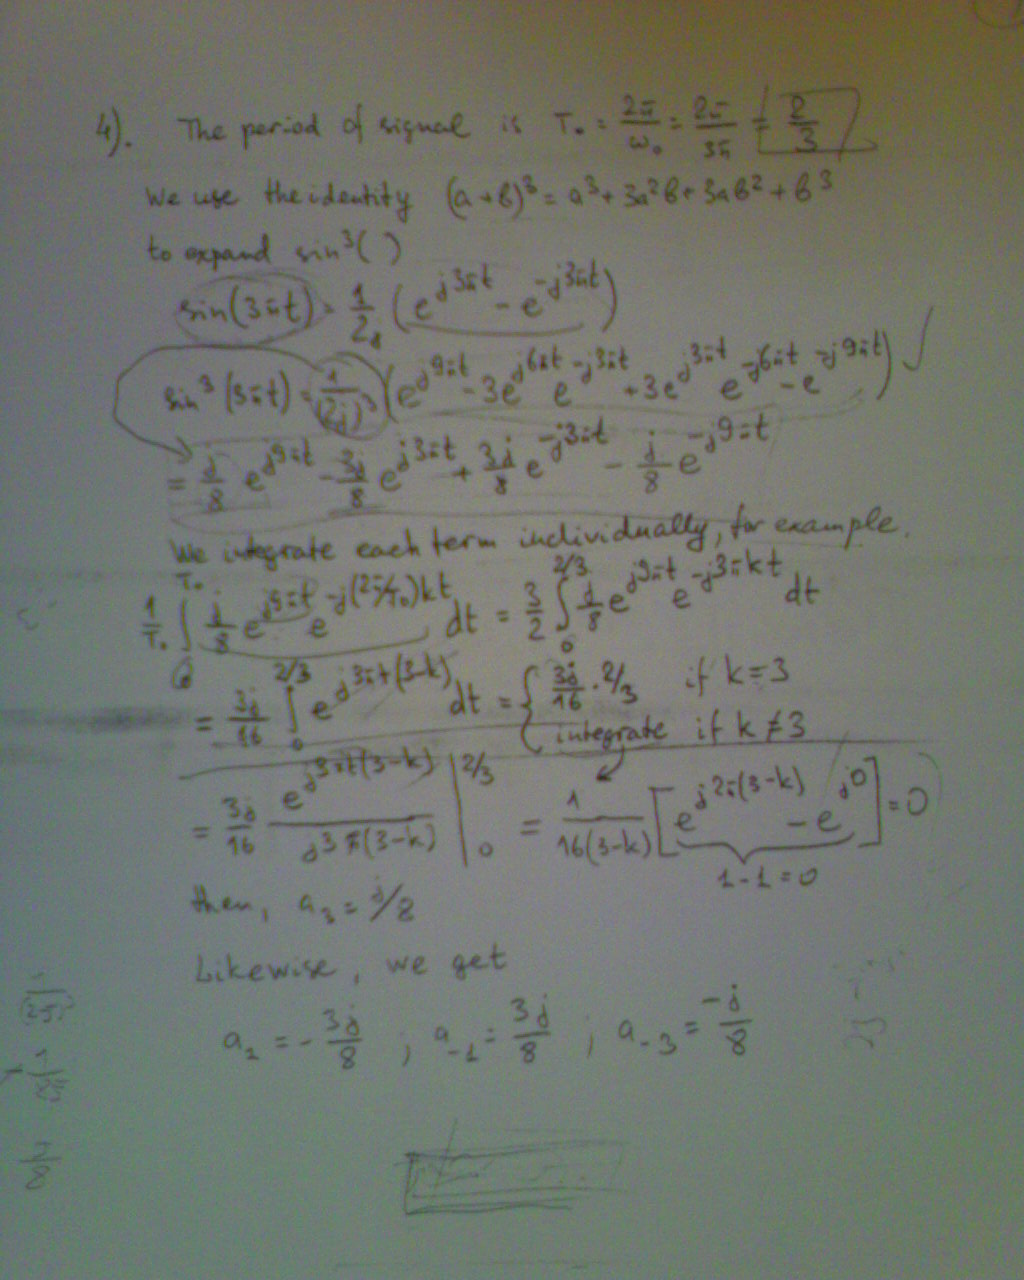 4). The period of signal is T₀ = 2π/ω₀ = 2π/3π = 2/3
We use the identity (a+b)³ = a³ + 3a²b + 3ab² + b³
to expand sin³( )
sin(3πt) = 1/2j (e^{j3πt} - e^{-j3πt})
sin³(3πt) = 1/(2j)³ (e^{j9πt} - 3e^{j6πt} e^{-j3πt} + 3e^{j3πt} e^{-j6πt} - e^{-j9πt}) ✓
= j/8 e^{j9πt} - 3j/8 e^{j3πt} + 3j/8 e^{-j3πt} - j/8 e^{-j9πt}
We integrate each term individually, for example.
1/T₀ ∫₀^{T₀} j/8 e^{j9πt} e^{-j(2π/T₀)kt} dt = 3/2 ∫₀^{2/3} j/8 e^{j9πt} e^{-j3πkt} dt
= 3j/16 ∫₀^{2/3} e^{j3πt(3-k)} dt = { 3j/16 · 2/3 if k=3
integrate if k≠3
= 3j/16 e^{j3πt(3-k)} / j3π(3-k) |₀^{2/3} = 1/16(3-k) [e^{j2π(3-k)} - e^{j0}] = 0
1-1=0
then, a₃ = j/8
Likewise, we get
a₁ = - 3j/8 ; a₋₁ = 3j/8 ; a₋₃ = -j/8